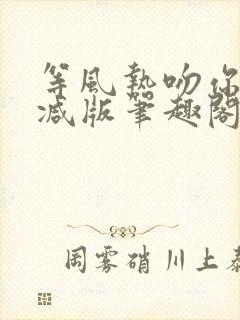 等風熱吻你
減版筆趣閣
周雾硝川上泰